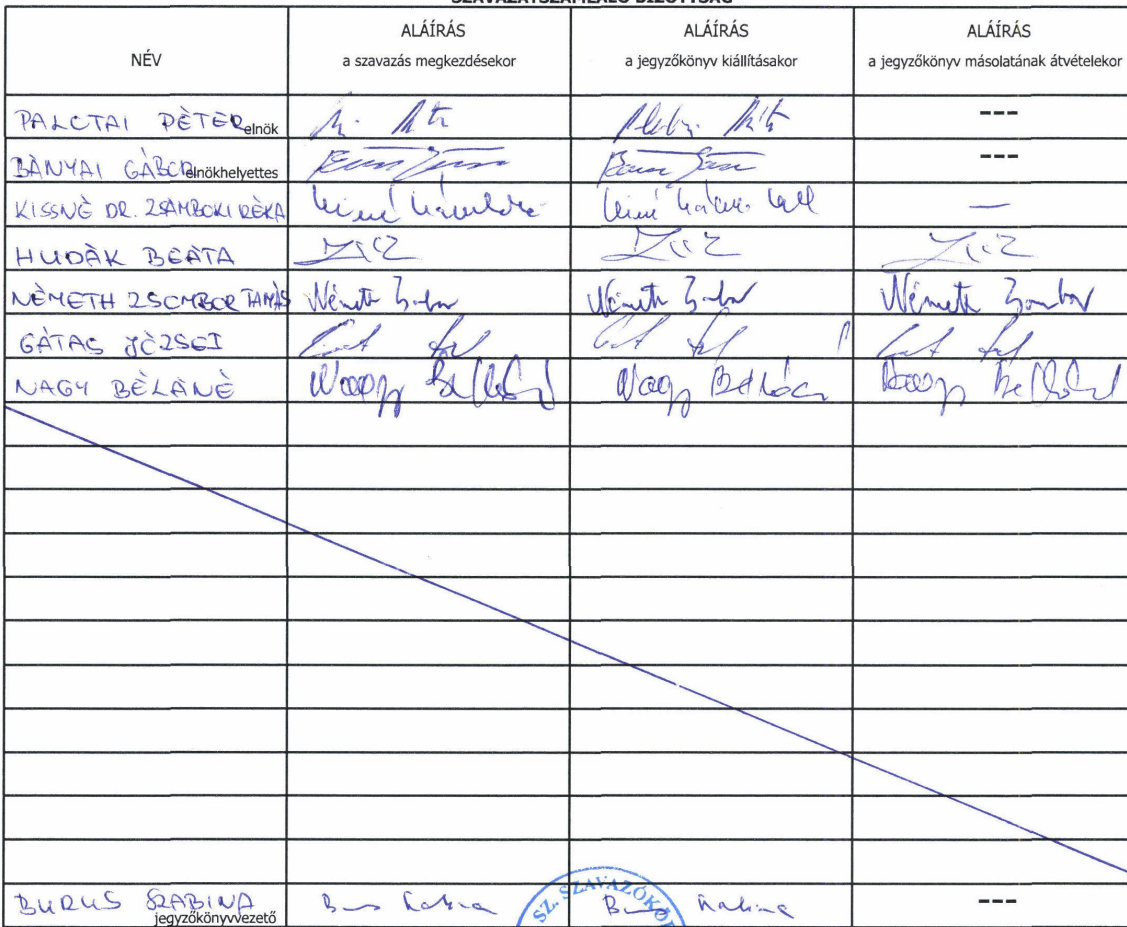 SZAVAZATSZÁMLÁLÓ BIZOTTSÁG
NÉV
ALÁÍRÁS
a szavazás megkezdésekor
ALÁÍRÁS
a jegyzőkönyv kiállításakor
ALÁÍRÁS
a jegyzőkönyv másolatának átvételekor
PALOTAI PÉTER elnök
---
BÁNYAI GÁBOR elnökhelyettes
---
KISSNÉ DR. ZSÁMBOKI RÉKA
—
HUDÁK BEÁTA
NÉMETH ZSOMBOR TAMÁS Németh Zsombor Németh Zsombor Németh Zsombor
GÁTAS JÓZSEF
NAGY BÉLÁNÉ Nagy Béláné Nagy Béláné Nagy Béláné
BURUS SZABINA
jegyzőkönyvvezető
---
SZ. SZAVAZÓKÖR